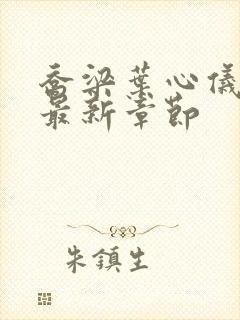 乔梁葉心儀
最新章節
朱鎮生